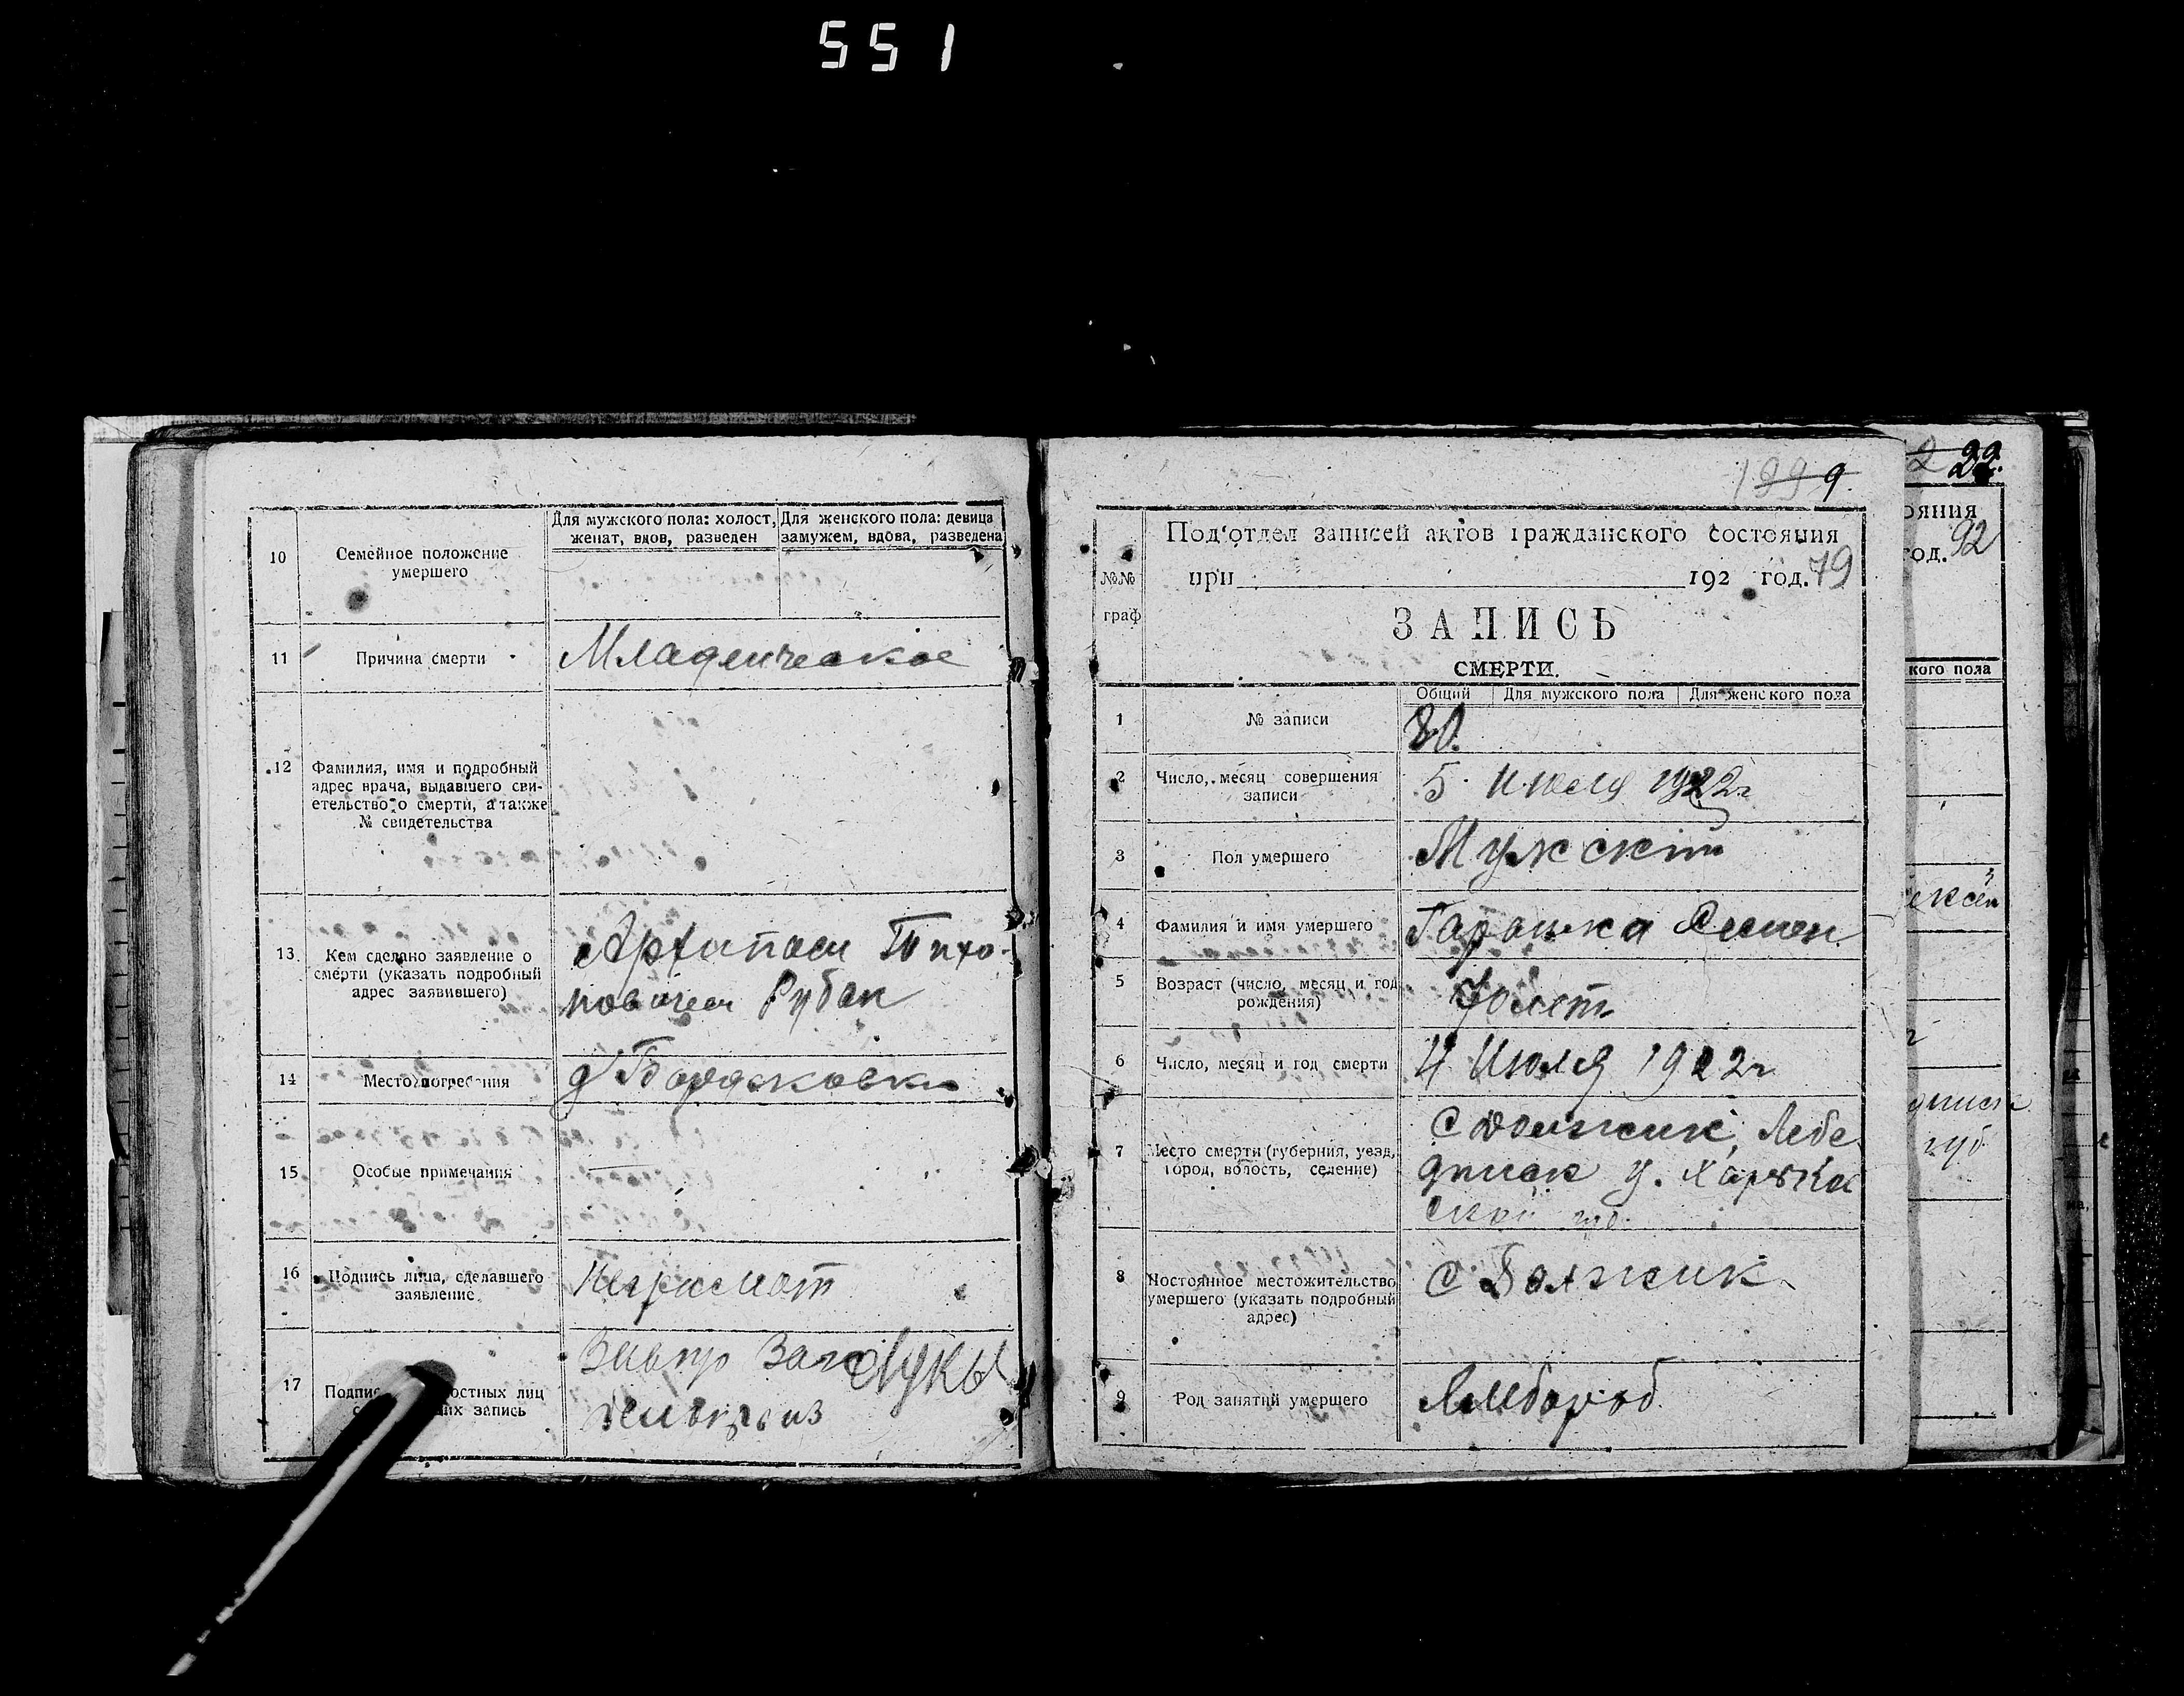 551
10
Семейное положение
умершего
Для мужского пола: холост,
женат, вдов, разведен
Для женского пола: девица
замужем, вдова, разведена
11
Причина смерти
Младенческое
12
Фамилия, имя и подробный
адрес врача, выдавшего сви-
етельство о смерти, а также
№ свидетельства
13.
Кем сделано заявление о
смерти (указать подробный
адрес заявившего)
Тихо-
новичем Рубан
14
Место погребения
15
Особые примечания
16
Подпись лица, сделавшего
заявление
17
запись
9.
Под'отдел записей актов гражданского состояния
при 192 год. 79
№№
граф
ЗАПИСЬ
СМЕРТИ.
Общий Для мужского пола Для женского пола
1
№ записи
80.
2
Число, месяц совершения
записи
5 Июля 1922г
3
Пол умершего
Мужскій
4
Фамилия и имя умершего
Семен
5
Возраст (число, месяц и год
рождения)
лет
6
Число, месяц и год смерти
4 Июля 1922г
7
Место смерти (губерния, уезд,
город, волость, селение)
С Должик, Лебе
динск у. Харько
ской губ.
8
Постоянное местожительство
умершего (указать подробный
адрес)
С Должик
9
Род занятий умершего
Хлебороб
22.
ояния
од. 92
кого пола
губ